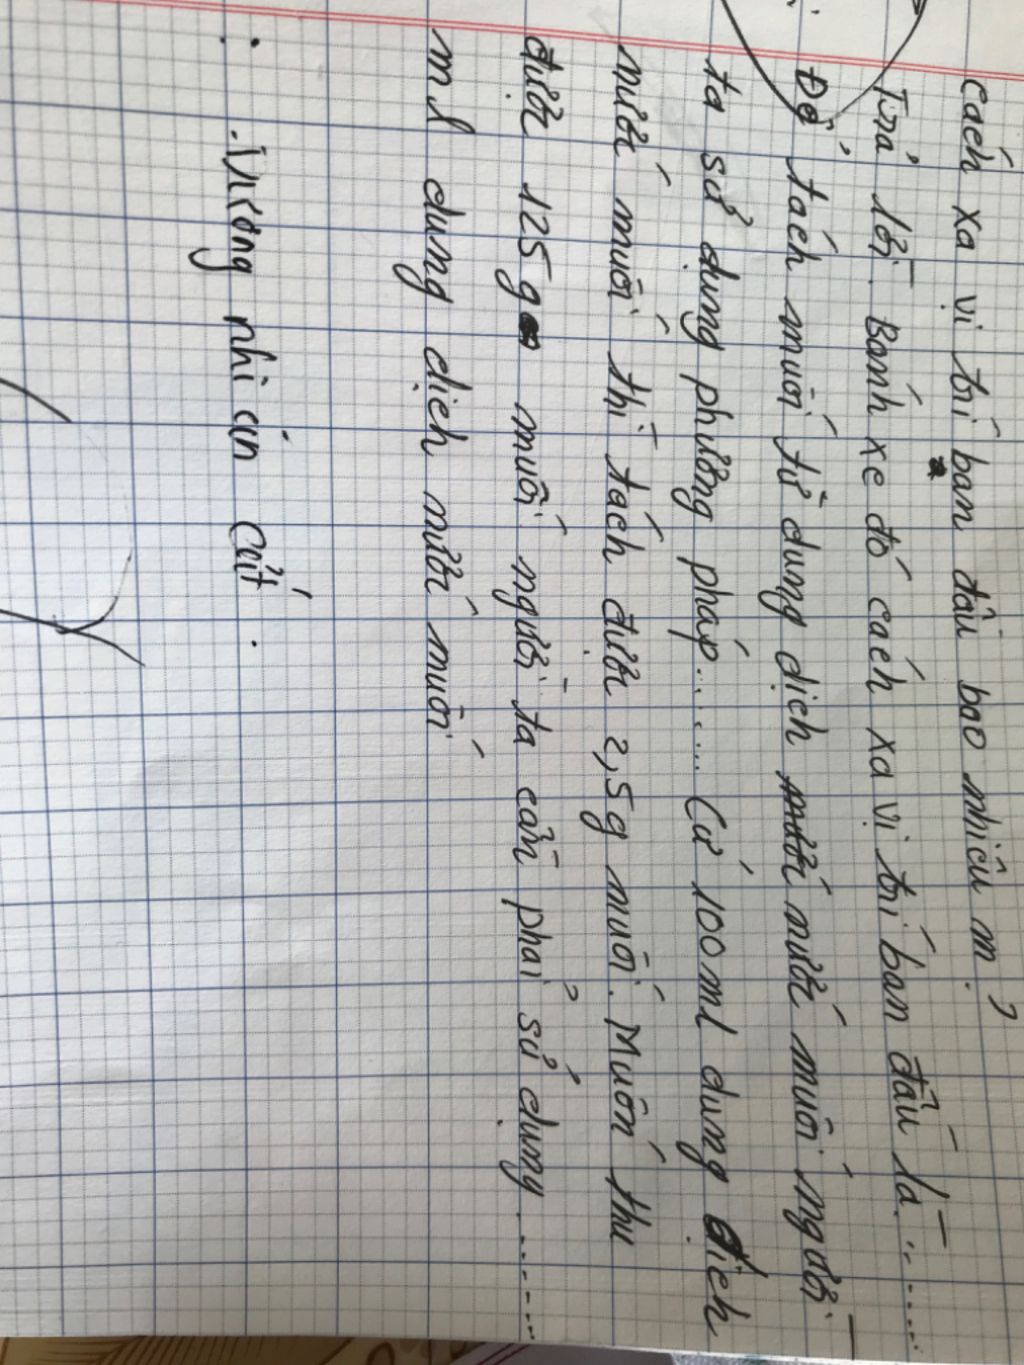 cách xa vị trí ban đầu bao nhiêu m?
Trả lời: Bánh xe đó cách xa vị trí ban đầu là.......
Để tách muối từ dung dịch nước muối người
ta sử dụng phương pháp....... Cứ 100ml dung dịch
nước muối thì tách được 2,5g muối. Muốn thu
được 125g muối người ta cần phải sử dụng.......
ml dung dịch nước muối
nhi cán